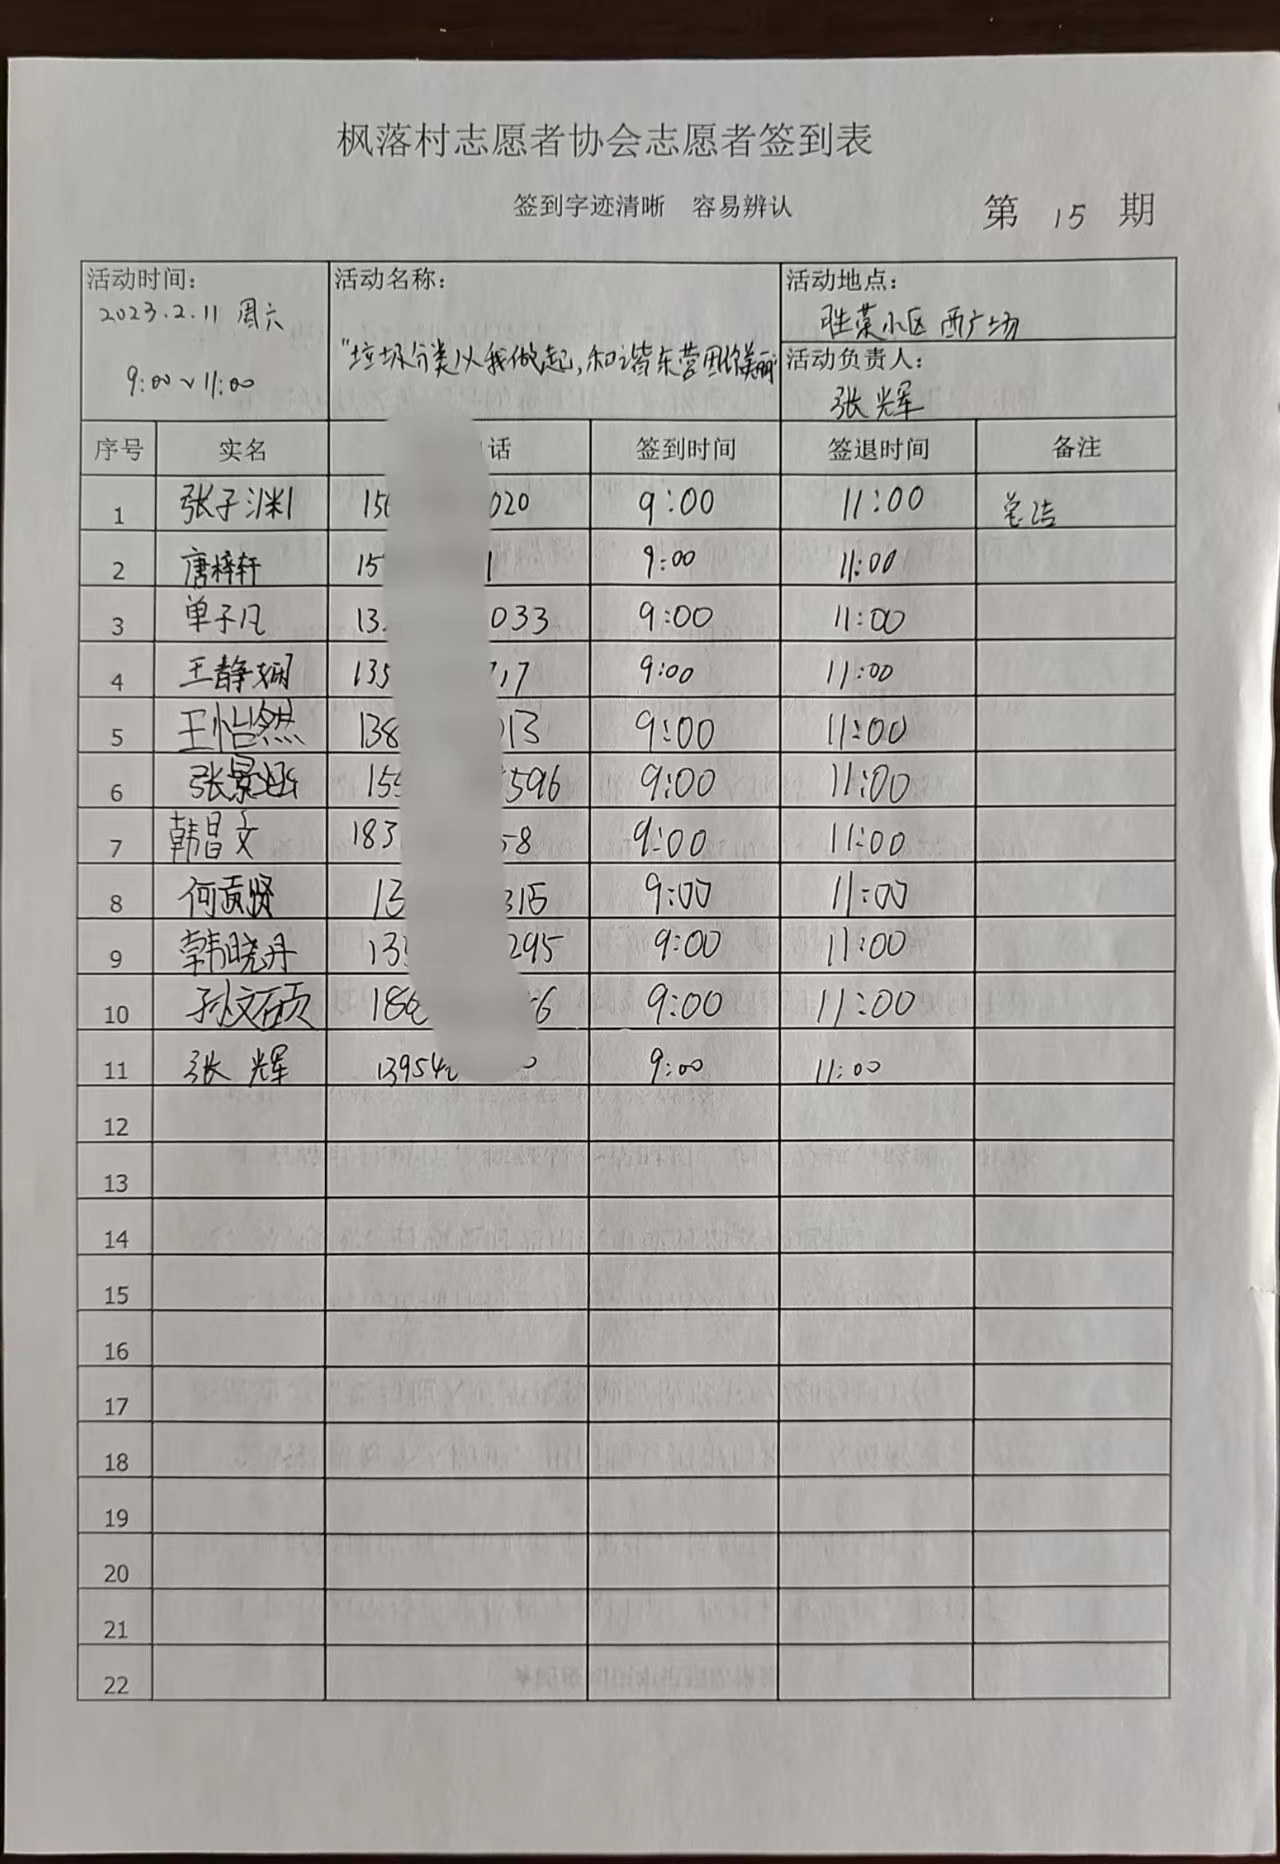 枫落村志愿者协会志愿者签到表
签到字迹清晰 容易辨认
第 15 期
活动时间:
2023.2.11 周六
9:00~11:00
活动名称:
"垃圾分类从我做起,和谐东营因你美丽"
活动地点:
胜荣小区 西广场
活动负责人:
张辉
序号 实名 话 签到时间 签退时间 备注
1 张子渊 020 9:00 11:00 总结
2 唐梓轩 15 1 9:00 11:00
3 单子凡 13 033 9:00 11:00
4 王静娴 135 17 9:00 11:00
5 王怡然 138 013 9:00 11:00
6 张景涵 155 596 9:00 11:00
7 韩昌文 183 58 9:00 11:00
8 何贡贤 13 315 9:00 11:00
9 韩晓丹 13 295 9:00 11:00
10 孙文硕 186 6 9:00 11:00
11 张辉 13954 9:00 11:00
12
13
14
15
16
17
18
19
20
21
22